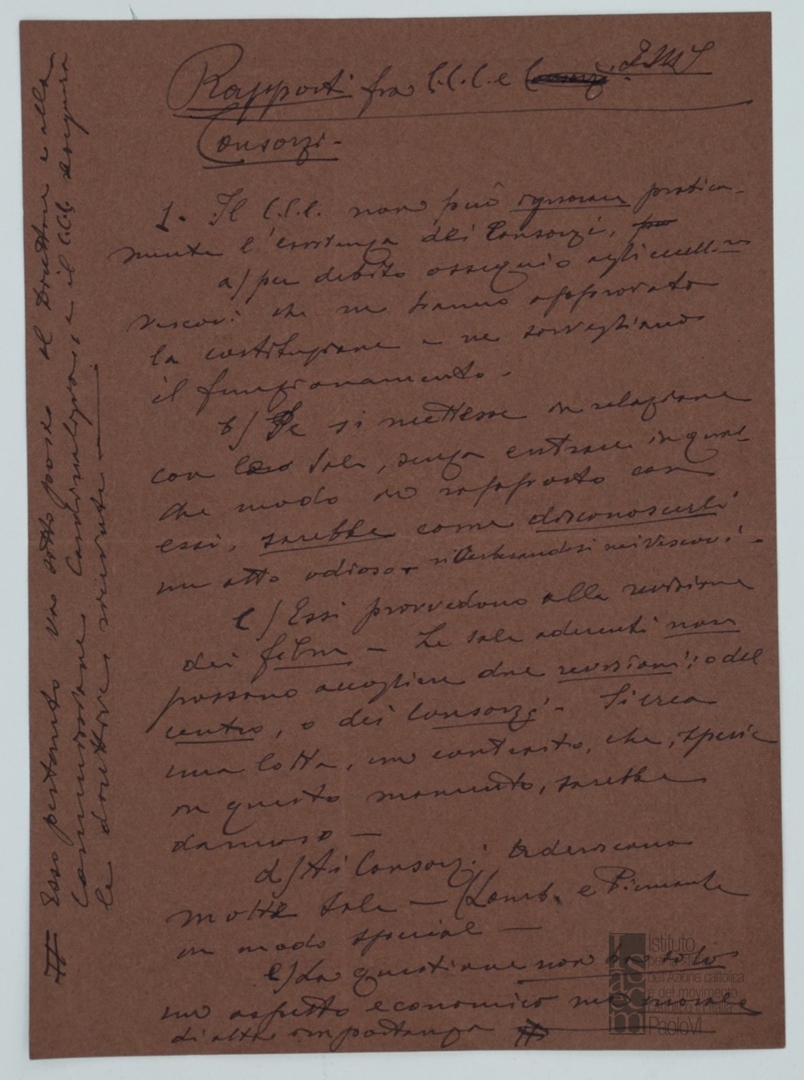 Rapporti fra C.C.C. e
Consorzi.
1. Il C.C.C. non può ignorare pratica-
mente l'esistenza dei Consorzi,
a) per debito ossequio agli eccell.mi
vescovi che ne hanno approvato
la costituzione e ne sorvegliano
il funzionamento.
b) Se si mettesse in relazione
con le Sale, senza entrare in qual-
che modo in rapporto con
essi, sarebbe come disconoscerli
un atto odioso, nei vescovi.
c) Essi provvedono alla revisione
dei film - Le sale aderenti non
possono accogliere due revisioni: o del
centro, o dei Consorzi. Si crea
una lotta, un contrasto, che, specie
in questo momento, sarebbe
dannoso -
d) Ai Consorzi aderiscono
molte Sale - (Lomb. e Piemonte
in modo special -
e) La questione non ha solo
un aspetto economico ma morale
di alta importanza #
# Esso pertanto va sottoposto al Direttore e alla
Commissione Cardinalizia e il C.C.C. eseguirà
le direttive ricevute -
Istituto
dell'Azione cattolica
e del movimento
Paolo VI